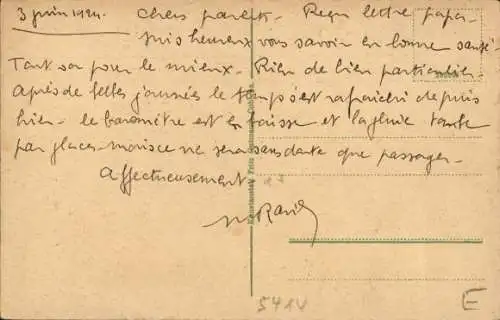 3 juin 1924.
Chers parents. Reçu lettre papa.
suis heureux vous savoir en bonne santé.
Tout va pour le mieux. Rien de bien particulier.
Après de belles journées le temps s'est rafraîchi depuis
hier. le baromètre est en baisse et la pluie tombe
par places. mais ce ne sera sans doute que passager.
Affectueusement
5414
E